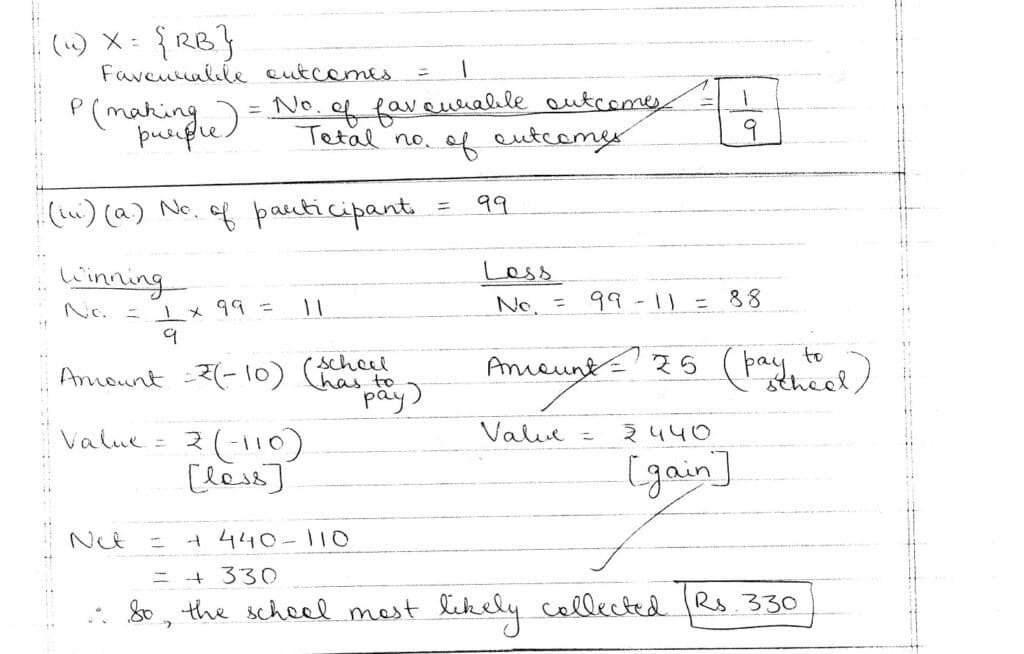 (ii) X = {RB}
Favourable outcomes = 1
P (making purple) = No. of favourable outcomes / Total no. of outcomes = 1/9
(iii) (a.) No. of participants = 99
Winning Loss
No. = 1/9 × 99 = 11 No. = 99 - 11 = 88
Amount = ₹(-10) (school has to pay) Amount = ₹5 (pay to school)
Value = ₹(-110) Value = ₹440
[loss] [gain]
Net = + 440 - 110
= + 330
∴ So, the school most likely collected Rs. 330